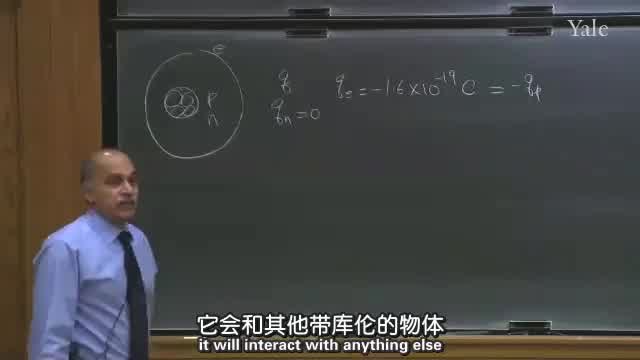 Yale
e
p
n
q
qₑ = -1.6 × 10⁻¹⁹ C = -qₚ
qₙ = 0
它会和其他带库伦的物体
it will interact with anything else